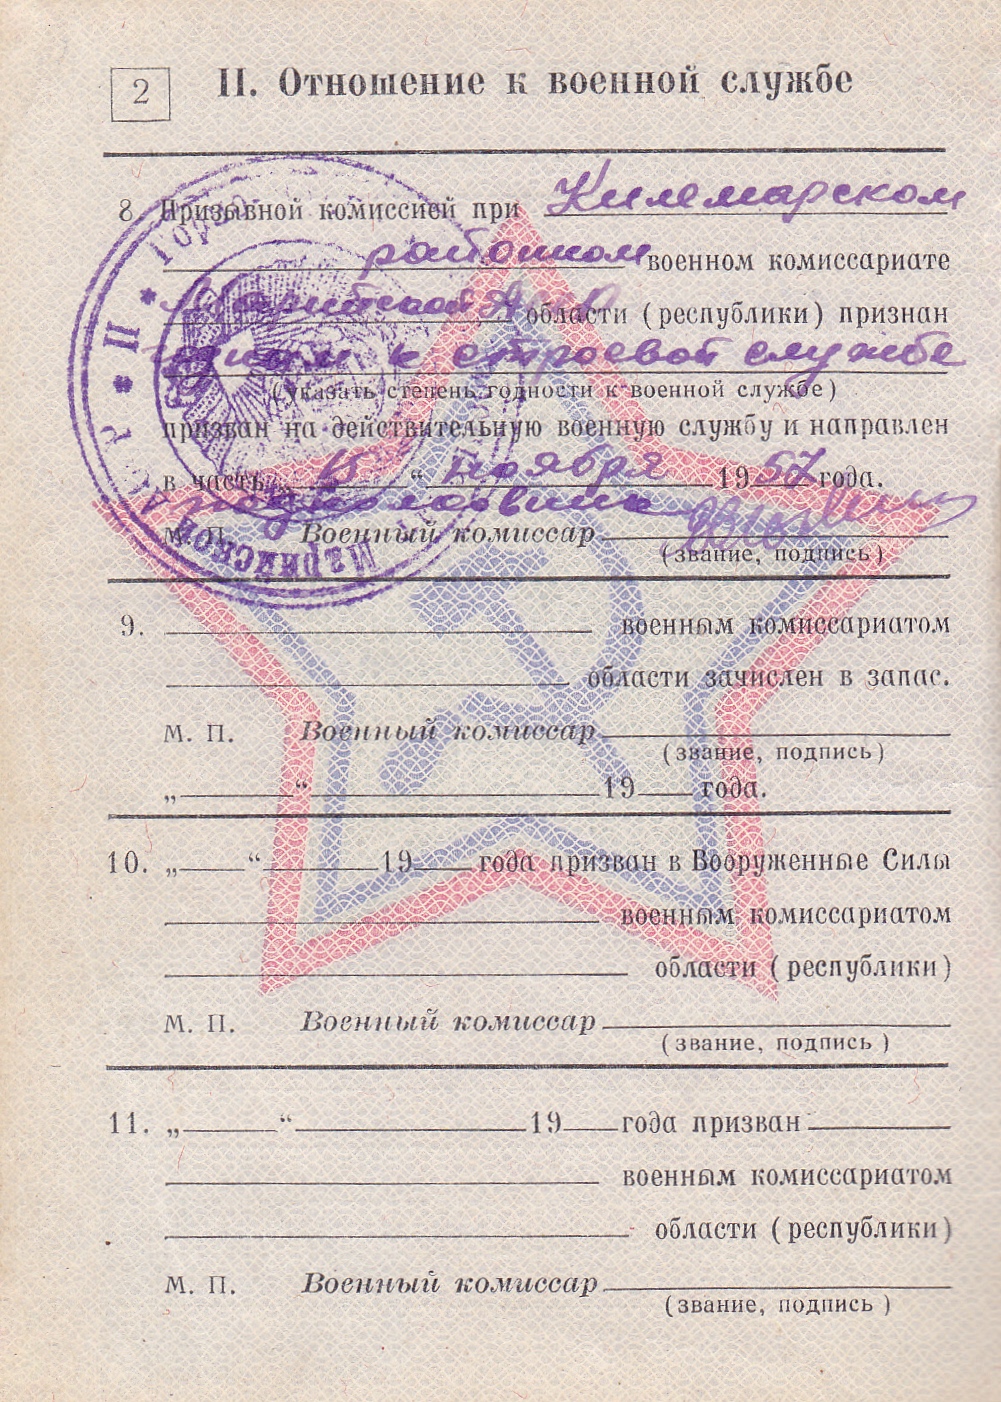 2
II. Отношение к военной службе
8. Призывной комиссией при Килемарском
районном военном комиссариате
Марийской АССР области (республики) признан
годным к строевой службе
(указать степень годности к военной службе)
призван на действительную военную службу и направлен
в часть „ 15 “ ноября 1957 года.
подполковник
М. П. Военный комиссар
(звание, подпись)
9. военным комиссариатом
области зачислен в запас.
М. П. Военный комиссар
(звание, подпись)
„ “ 19 года.
10. „ “ 19 года призван в Вооруженные Силы
военным комиссариатом
области (республики)
М. П. Военный комиссар
(звание, подпись)
11. „ “ 19 года призван
военным комиссариатом
области (республики)
М. П. Военный комиссар
(звание, подпись)
Марийской АССР